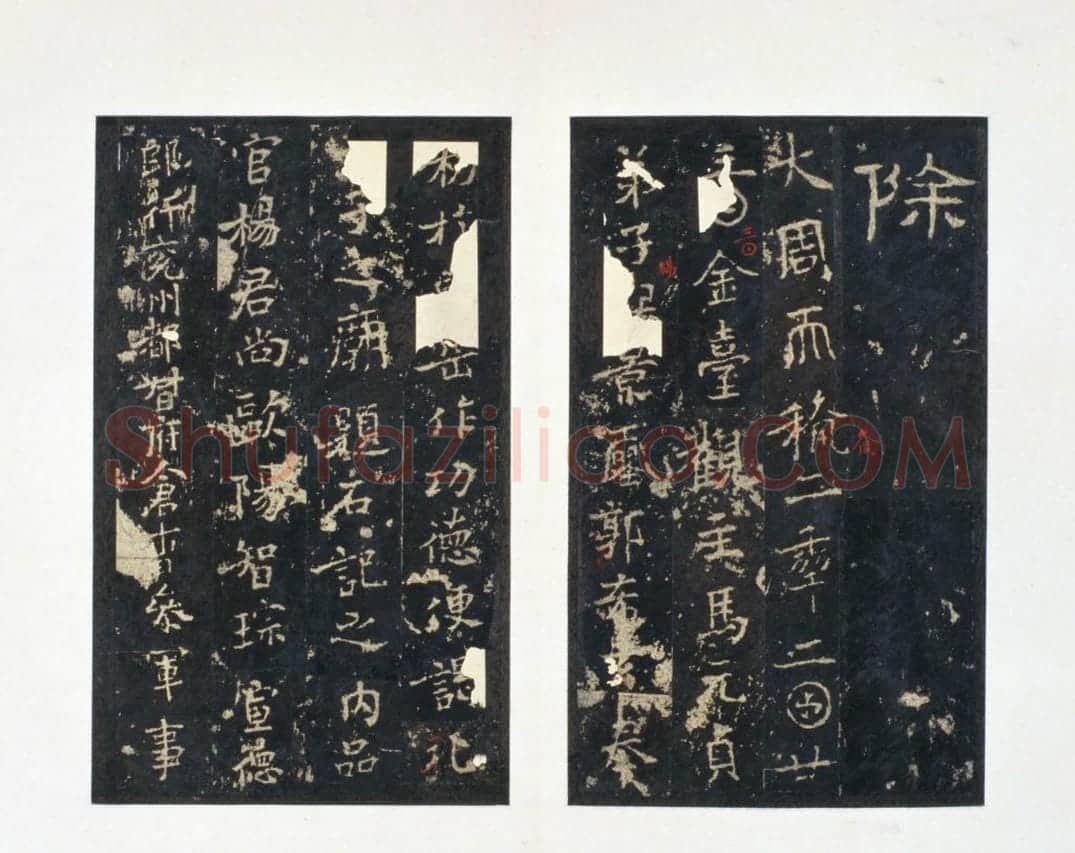 除
大周𠀑𥠢二𠡦二𠥱廿
金臺觀主馬元貞
弟子景𡔈郭希奉
勑於岳作功德便謁孔
子之廟題石記之內品
官楊君尚歐陽智琮宣德
郎行兗州都督府倉曹參軍事
Shufaziliao.COM